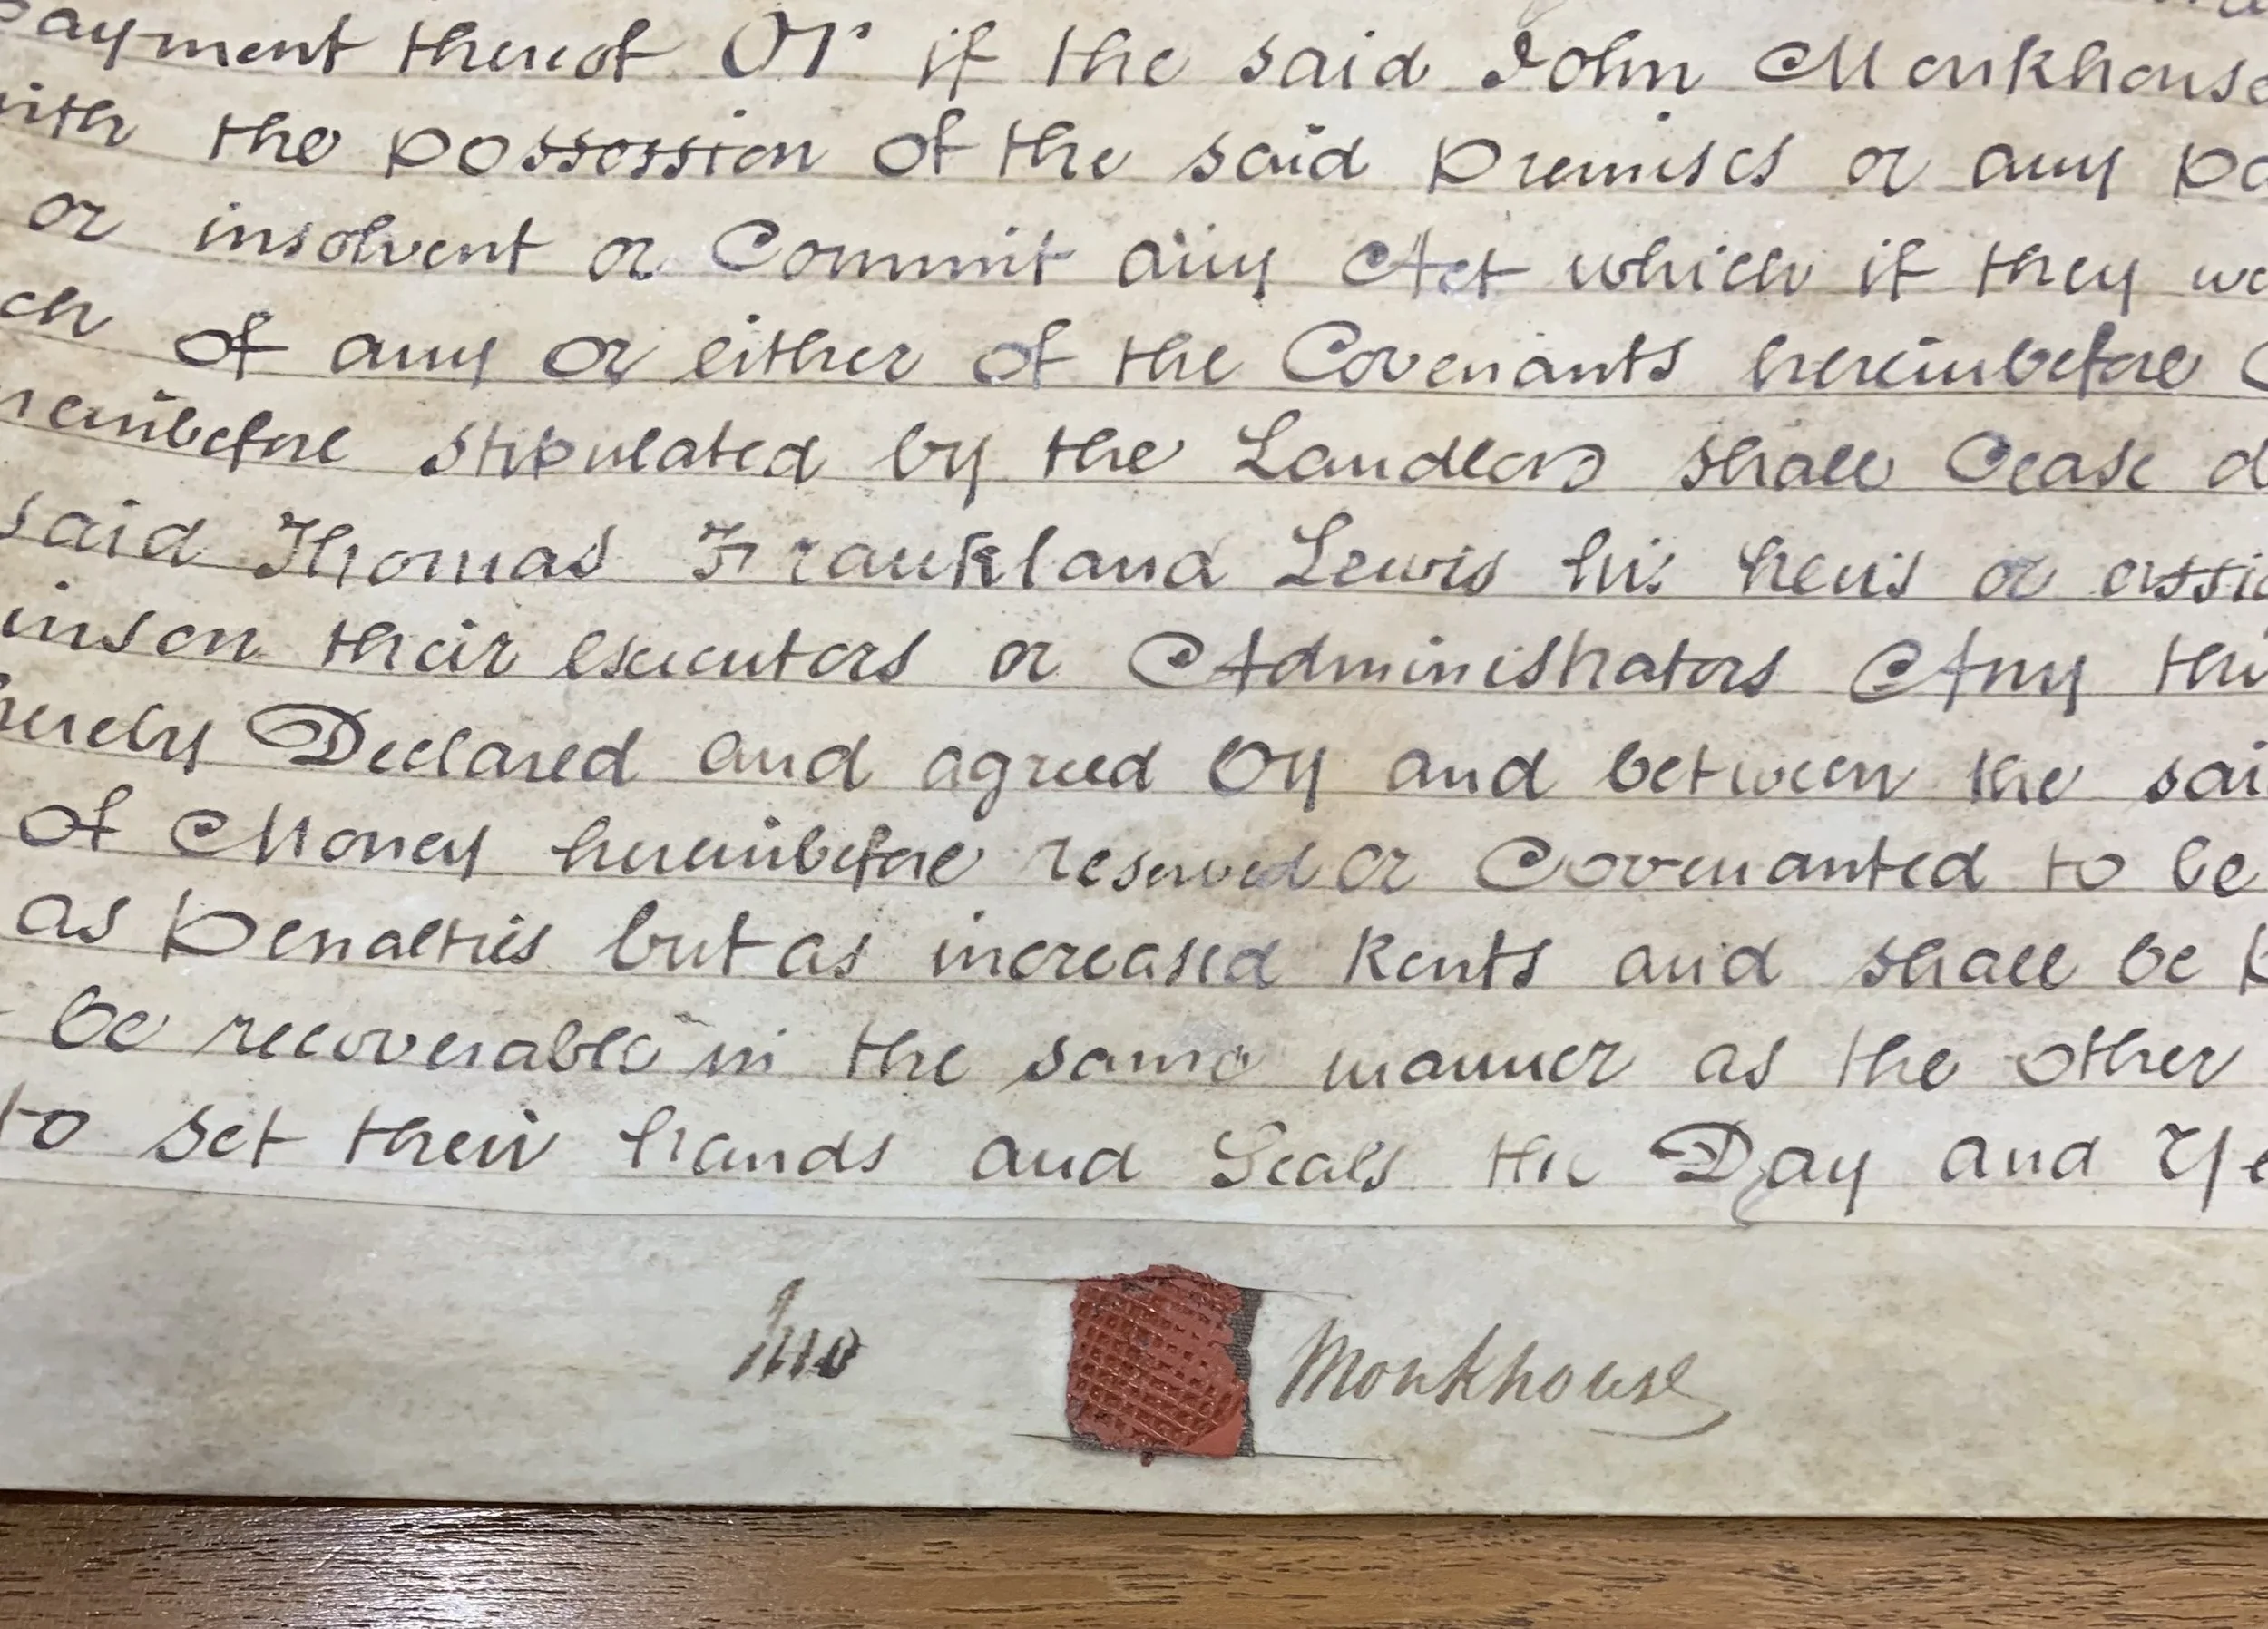 payment thereof Or if the said John Monkhouse
with the possession of the said premises or any
or insolvent or Commit any Act which if they
ch of any or either of the Covenants hereinbefore
reinbefore stipulated by the Landlord shall Cease
said Thomas Frankland Lewis his heirs or assig
inson their executors or Administrators Any thi
hereby Declared and agreed By and between the sai
of Money hereinbefore reserved or Covenanted to be
as penalties but as increased Rents and shall be
be recoverable in the same manner as the other
to set their hands and Seals the Day and Ye
Jno Monkhouse